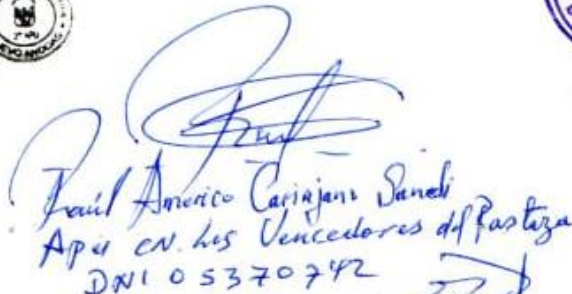 Raúl Americo Cariajano Sandi
Apu CN. Los Vencedores del Pastaza
DNI 05370742